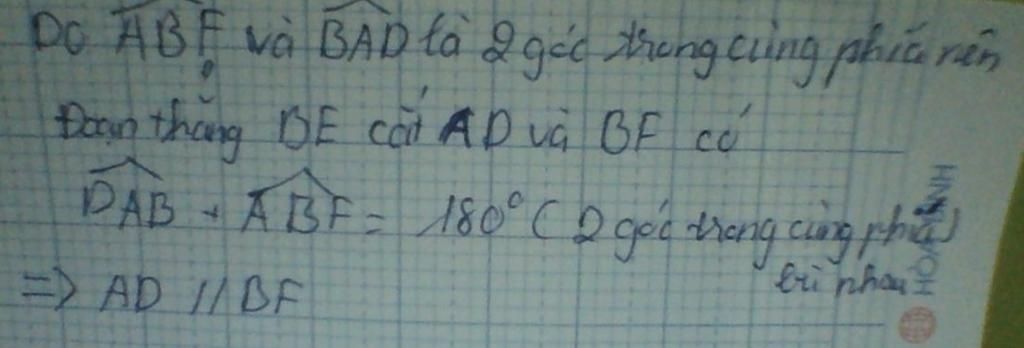 Do ABF và BAD là 2 góc trong cùng phía nên
Đoạn thẳng BE cắt AD và BF có
DAB + ABF = 180° ( 2 góc trong cùng phía)
bù nhau
=> AD // BF
HOA ANH